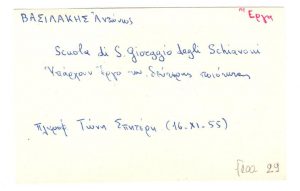 ΒΑΣΙΛΑΚΗΣ Αντώνιος
Έργα
Scuola di S. Giorggio degli Schiavoni
Υπάρχουν έργα του δεύτερης ποιότητας
πληροφ Τώνη Σπητέρη (16.XI.55)
29